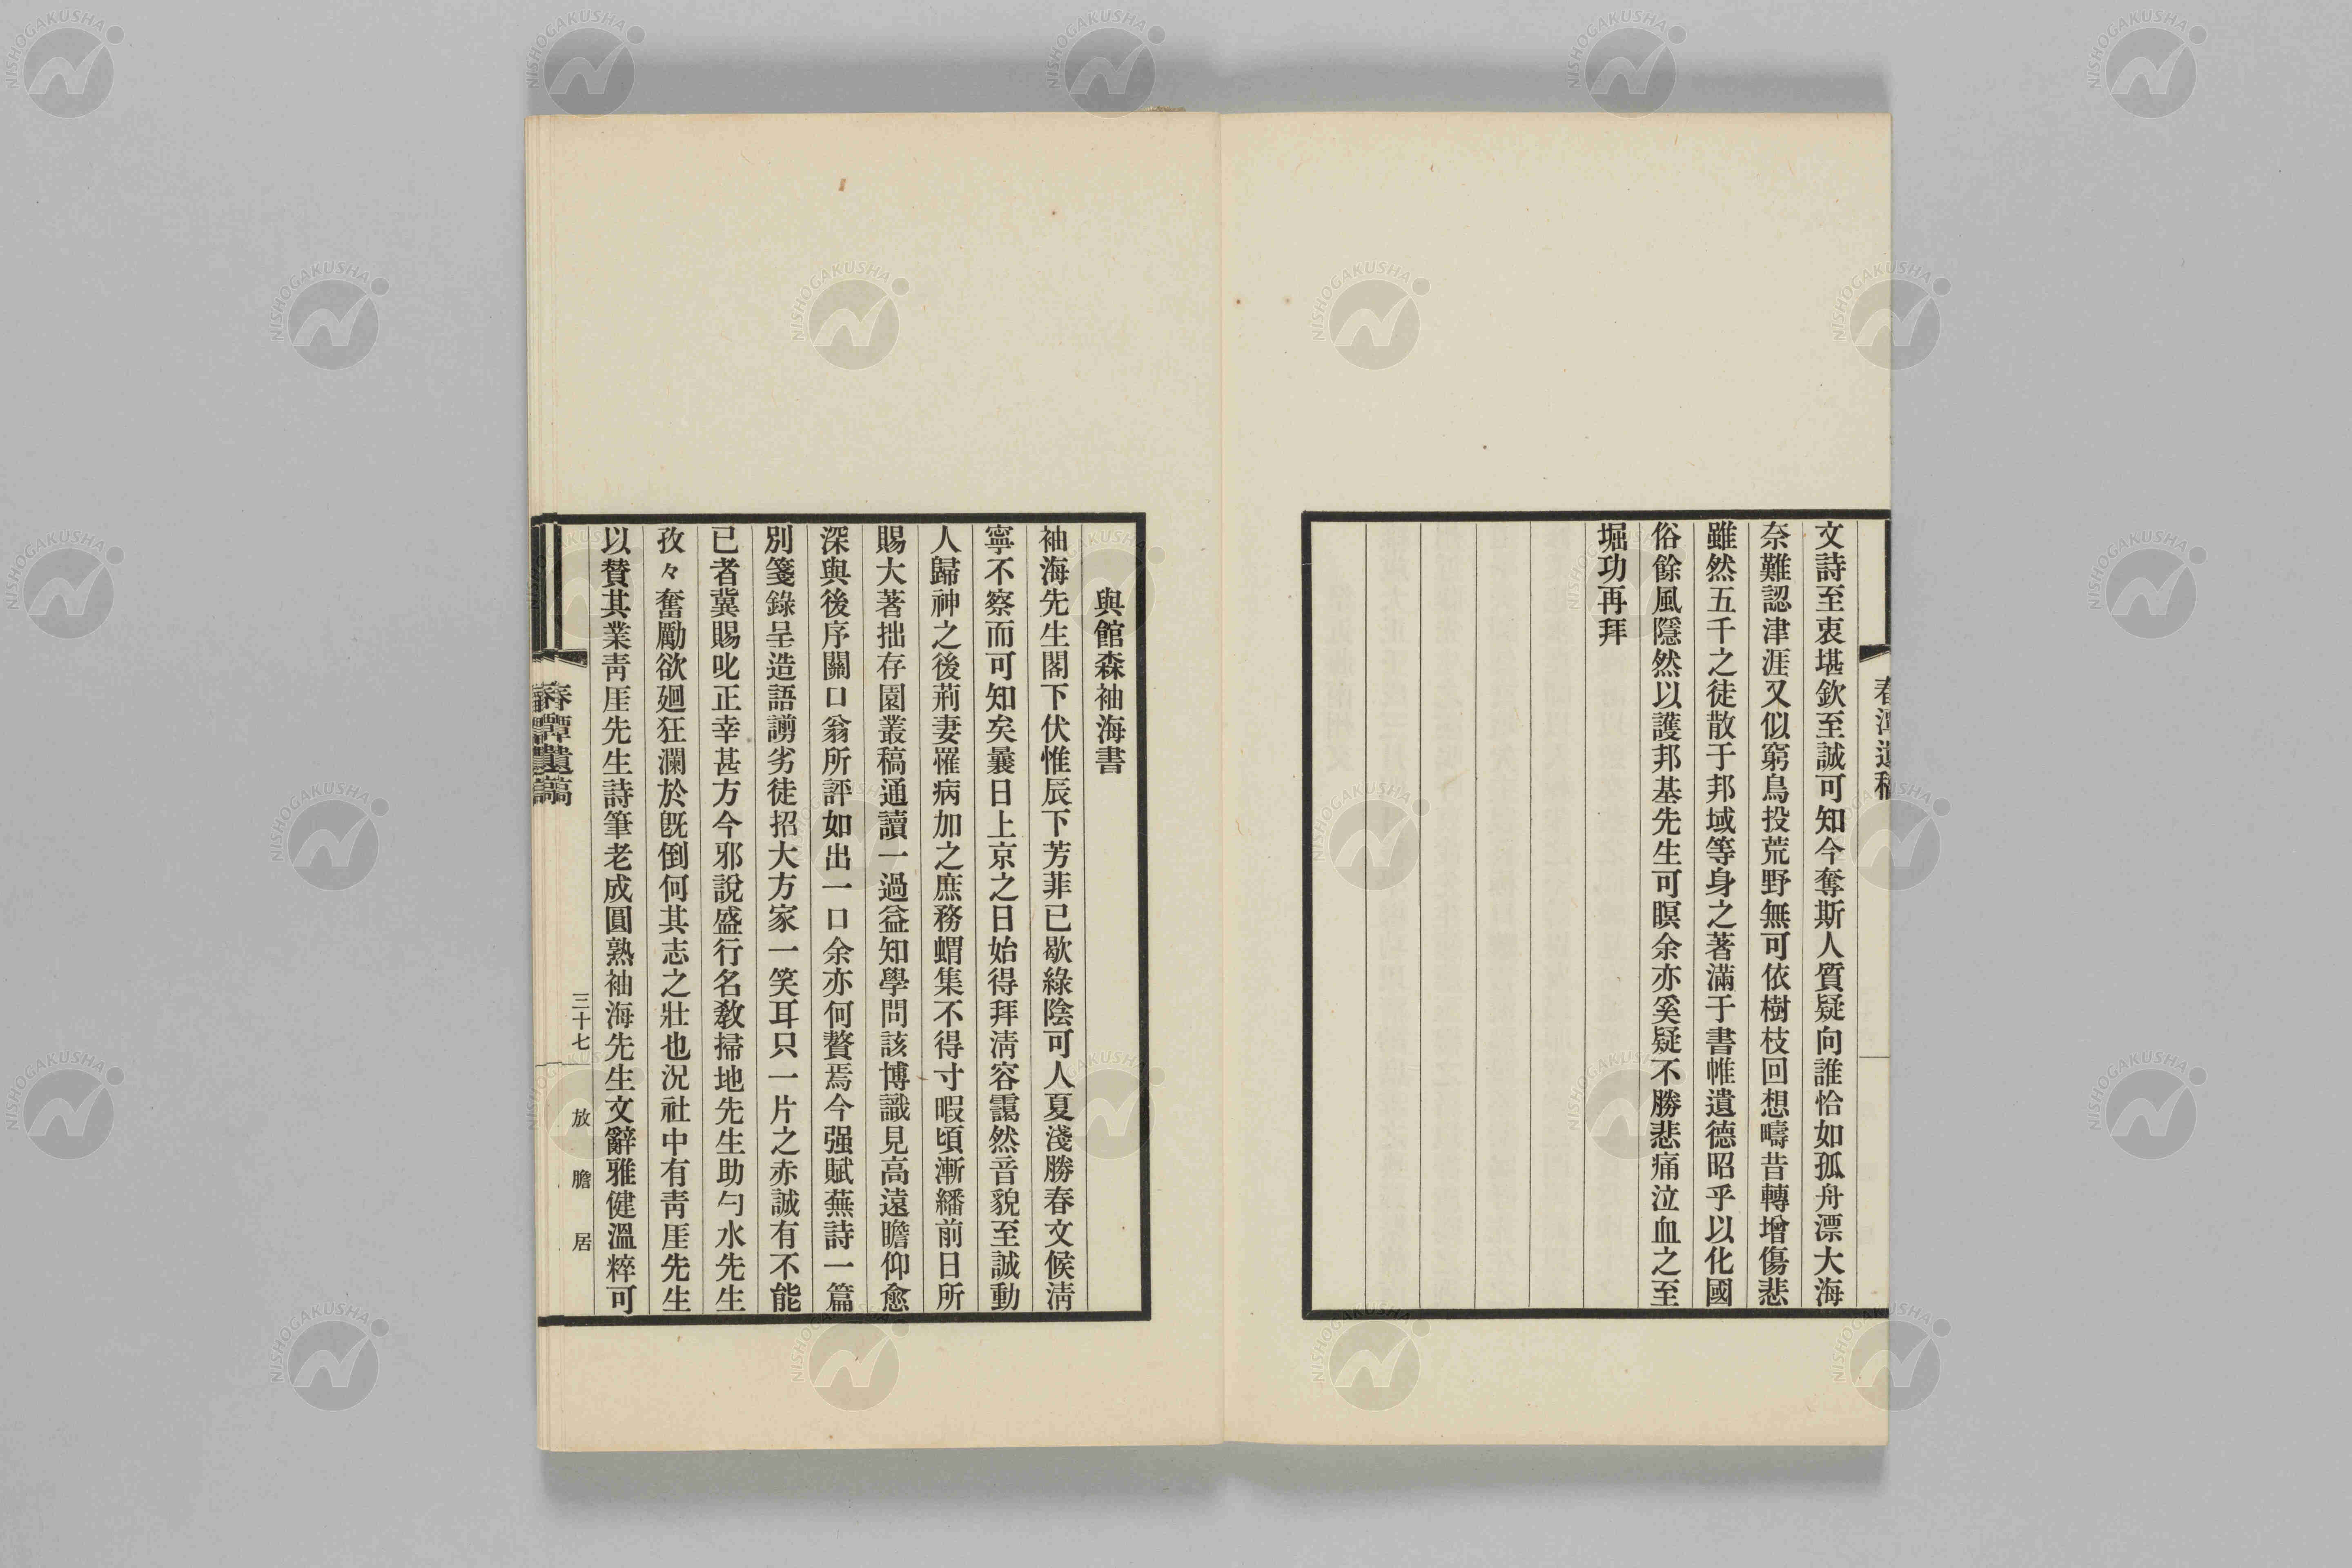 春潭遺稿
文詩至衷堪欽至誠可知今奪斯人質疑向誰恰如孤舟漂大海
奈難認津涯又似窮鳥投荒野無可依樹枝回想疇昔轉增傷悲
雖然五千之徒散于邦域等身之著滿于書帷遺德昭乎以化國
俗餘風隱然以護邦基先生可瞑余亦奚疑不勝悲痛泣血之至
堀功再拜
與館森袖海書
袖海先生閣下伏惟辰下芳菲已歇綠陰可人夏淺勝春文候淸
寧不察而可知矣曩日上京之日始得拜淸容靄然音貌至誠動
人歸神之後荊妻罹病加之庶務蝟集不得寸暇頃漸繙前日所
賜大著拙存園叢稿通讀一過益知學問該博識見高遠瞻仰愈
深與後序關口翁所評如出一口余亦何贅焉今强賦蕪詩一篇
別箋錄呈造語謭劣徒招大方家一笑耳只一片之赤誠有不能
已者冀賜叱正幸甚方今邪說盛行名敎掃地先生助勻水先生
孜々奮勵欲廻狂瀾於旣倒何其志之壯也況社中有靑厓先生
以贊其業靑厓先生詩筆老成圓熟袖海先生文辭雅健溫粹可
春潭遺稿
三十七
放膽居
NISHOGAKUSHA